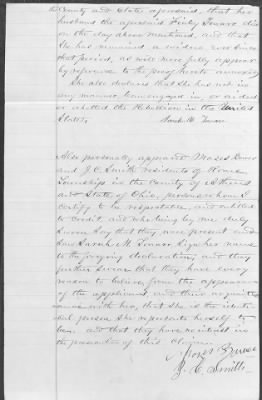 County and State aforesaid, that her
husband the aforesaid Finly Tumor died
on the day above mentioned, and that
she has remained a widow ever since
that period, as will more fully appear
by reference to the proof hereto annexed
She also declares that she has not in
any manner been engaged in, or aided
or abetted the Rebellion in the United
States.
Sarah M
Also personally appeared Moses
and J. C. Smith residents of Rome
Township in the County of Athens
and State of Ohio, persons whom I
certify to be respectable, and entitled
to credit, and who being by me duly
sworn say that they were present and
saw Sarah M. sign her name
to the foregoing declaration, and they
further swear that they have every
reason to believe from the appearance
of the applicant and their acquaint
ance with her, that she is the iden
tical person she represents herself to
be. and that they have no interest in
the prosecution of this claim.
Moses
J. C. Smith